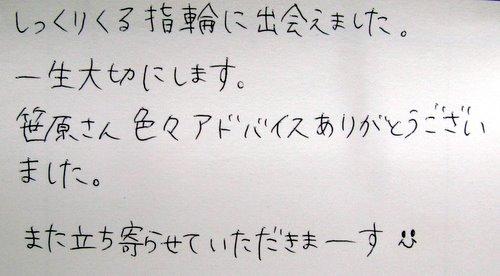 しっくりくる指輪に出会えました。
一生大切にします。
笹原さん色々アドバイスありがとうござい
ました。
また立ち寄らせていただきまーす